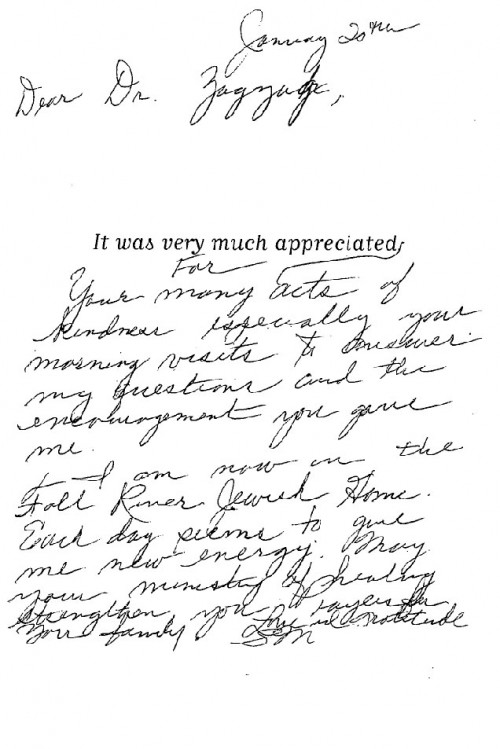 January 20th
Dear Dr.
It was very much appreciated,
For
Your many acts of
kindness especially your
morning visits to answer
my questions and the
encouragement you gave
me.
I am now in the
Fall River Jewish Home.
Each day seems to give
me new energy. May
your ministry of healing
strengthen you
Your family in gratitude